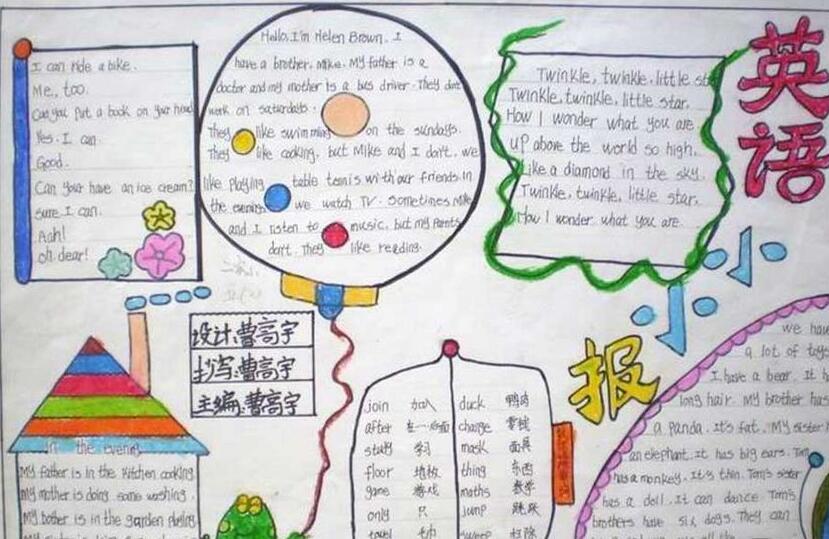 I can ride a bike.
Me, too.
Can you put a book on your head
Yes. I can.
Good.
Can your have an ice cream?
sure. I can.
Aah!
oh dear!
Hello, I'm Helen Brown. I
have a brother, Mike. My father is a
doctor and my mother is a bus driver. They don't
work on saturdays.
They like swimming on the sundays.
They like cooking, but Mike and I don't. we
like playing table tennis with our friends. In
the evening we watch TV. Sometimes Mike
and I listen to music, but my
don't. They like reading.
Twinkle, twinkle, little
Twinkle, twinkle, little star,
How I wonder what you are
up above the world so high,
Like a diamond in the sky.
Twinkle, twinkle, little star,
How I wonder what you are
英语
小小
报
设计:曹高宇
抄写:曹高宇
主编:曹高宇
In the evening
My father is in the kitchen cooking
My mother is doing some washing.
My bother is in the garden
join 加入
after 在…后面
study 学习
floor 地板
game 游戏
only 只
duck 鸭肉
change 零钱
mask 面具
thing 东西
maths 数学
jump 跳跃
sweep 扫除
we have
a lot of toys
I have a bear. It h
long hair. My brother has
a panda. It's fat. My sister h
an elephant. It has big ears. Tom
has a monkey. It's thin. Tom's sister
has a doll. It can dance Tom's
brothers have six dogs. They can